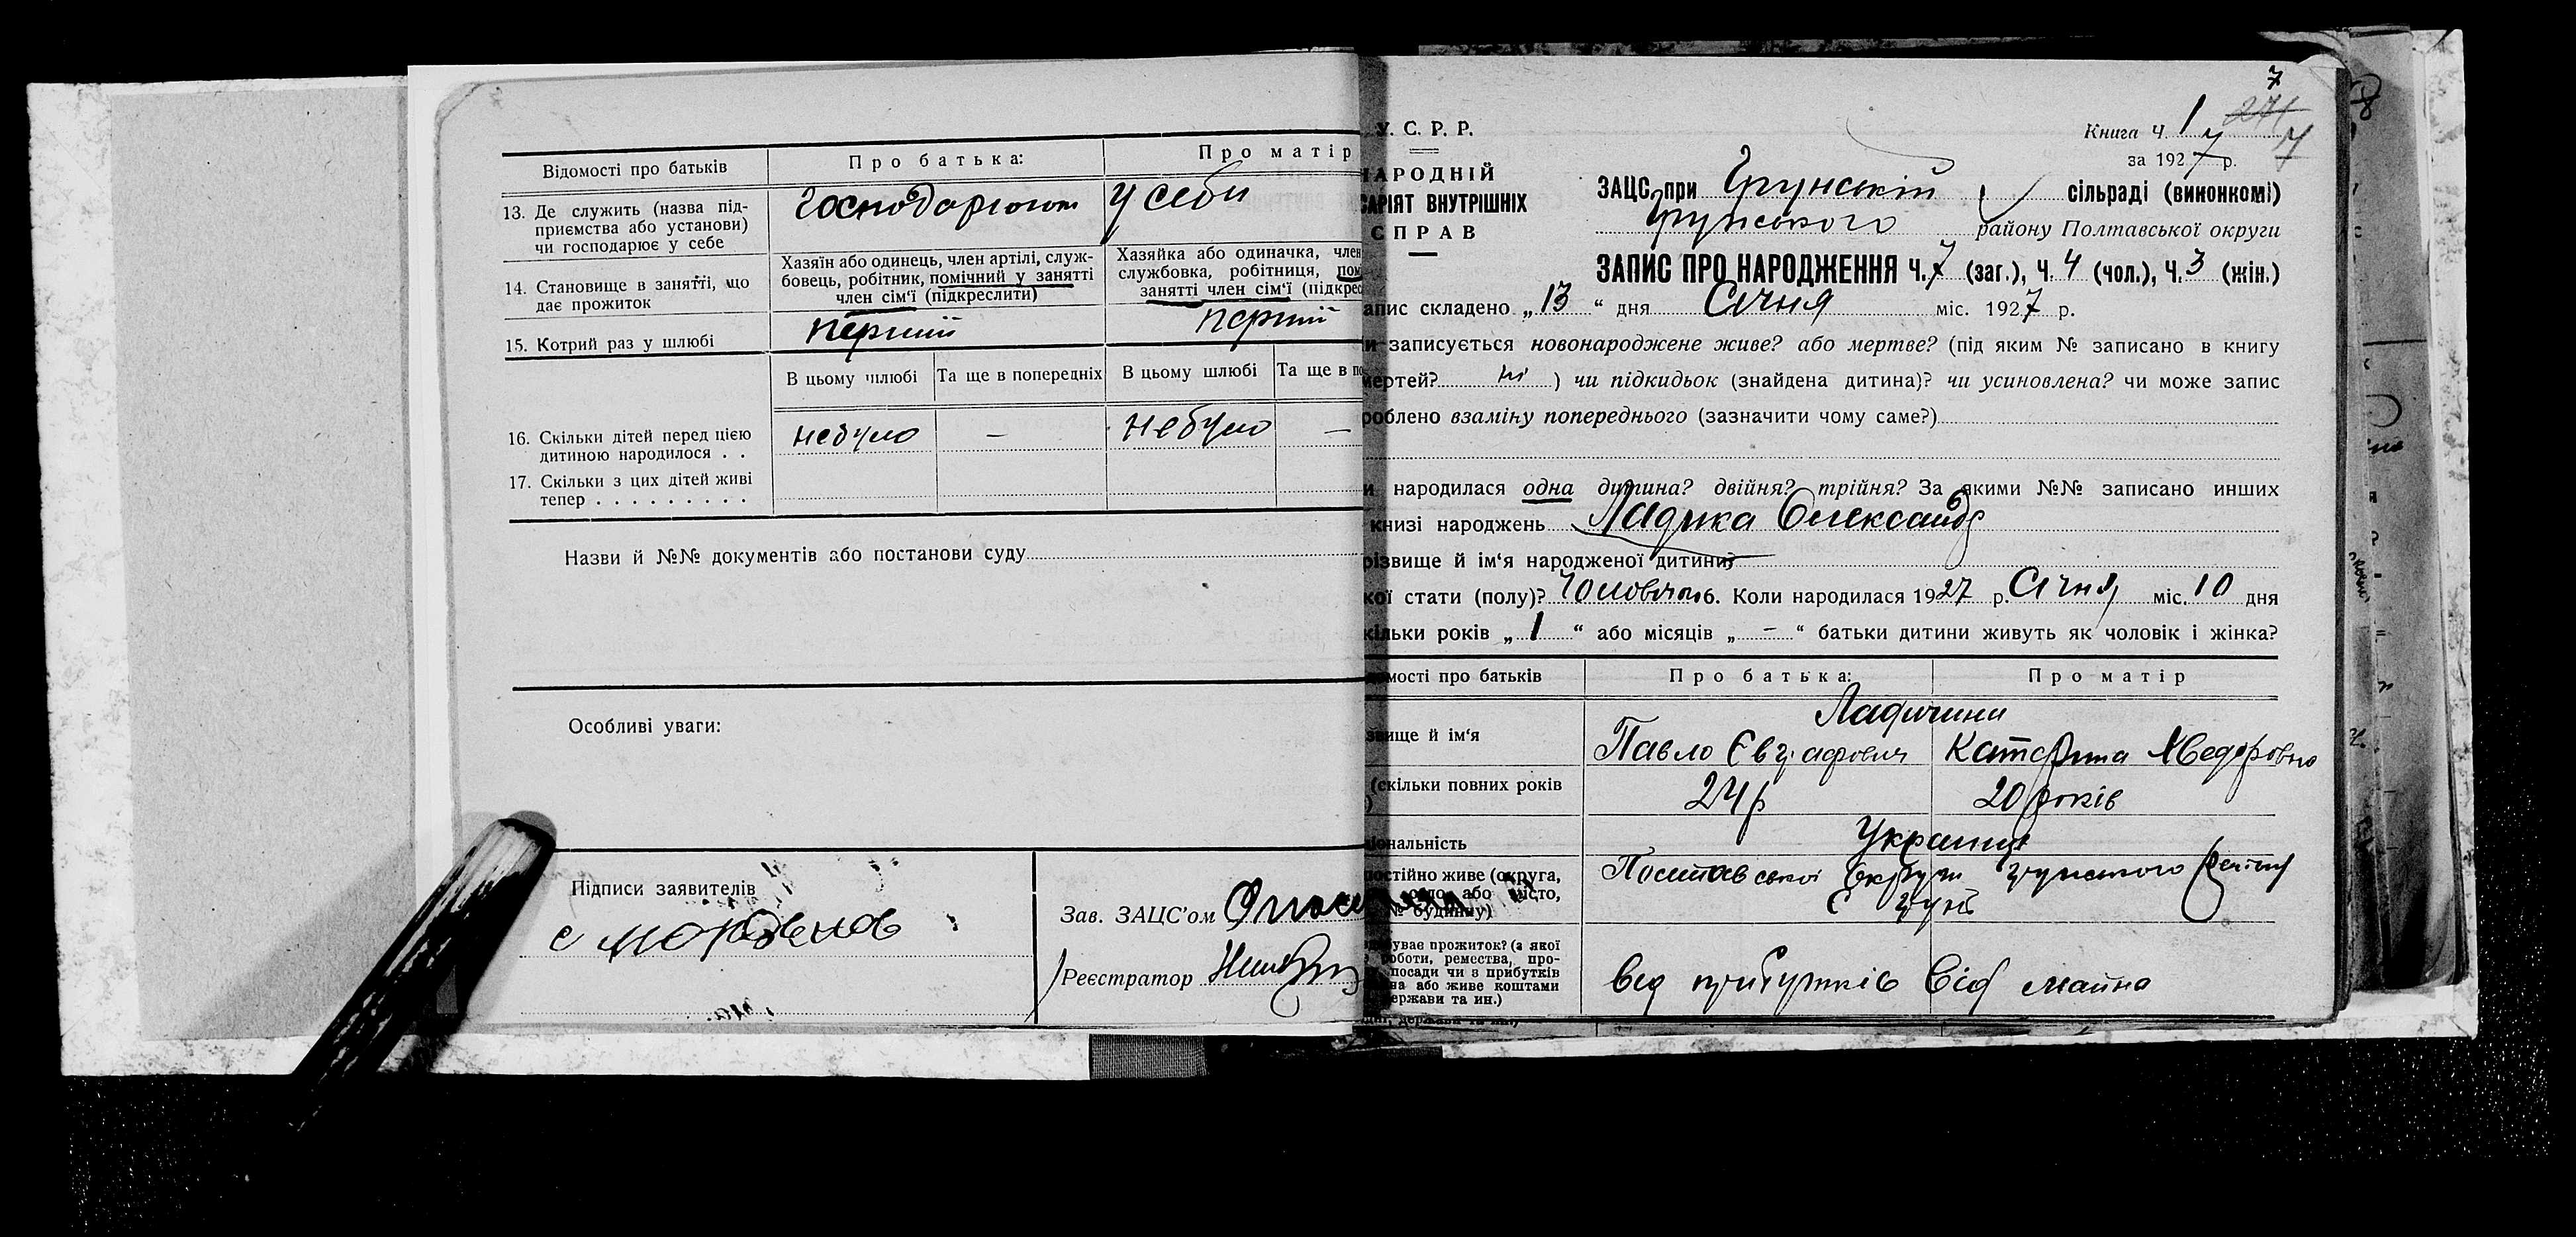 Відомості про батьків
Про батька:
Про матір
13. Де служить (назва під-
приємства або установи)
чи господарює у себе
Господарюють у себи
14. Становище в занятті, що
дає прожиток
Хазяїн або одинець, член артілі, служ-
бовець, робітник, помічний у занятті
член сім'ї (підкреслити)
Хазяйка або одиначка, член
службовка, робітниця, пом
занятті член сім'ї (підкрес
15. Котрий раз у шлюбі
перший
перший
В цьому шлюбі
Та ще в попередніх
В цьому шлюбі
Та ще в по
16. Скільки дітей перед цією
дитиною народилося . .
небуло
—
небуло
—
17. Скільки з цих дітей живі
тепер . . . . . . . . .
Назви й №№ документів або постанови суду
Особливі уваги:
Підписи заявителів
Зав. ЗАЦС'ом
Реєстратор
7
271
Книга ч. 1 7
за 1927 р.
У. С. Р. Р.
НАРОДНІЙ
САРІЯТ ВНУТРІШНІХ
СПРАВ
ЗАЦС при Грунській сільраді (виконкомі)
Грунського району Полтавської округи
ЗАПИС ПРО НАРОДЖЕННЯ Ч. 7 (заг.), Ч. 4 (чол.), Ч. 3 (жін.)
апис складено „13" дня Січня міс. 1927 р.
и записується новонароджене живе? або мертве? (під яким № записано в книгу
мертей? ні ) чи підкидьок (знайдена дитина)? чи усиновлена? чи може запис
роблено взаміну попереднього (зазначити чому саме?)
и народилася одна дитина? двійня? трійня? За якими №№ записано инших
книзі народжень Ладика Олександр
різвище й ім'я народженої дитини?
кої стати (полу)? Чоловічої 6. Коли народилася 1927 р. Січня міс. 10 дня
кільки років „1" або місяців „–" батьки дитини живуть як чоловік і жінка?
омості про батьків
Про батька:
Про матір
звище й ім'я
Павло Євграфович
Катерина Хведоровна
(скільки повних років
24р
20 років
іональність
Українці
постійно живе (округа,
село або місто,
№ будинку)
Полтавської Округи грунського району
с грунь
буває прожиток? (з якої
роботи, ремества, про-
посади чи з прибутків
на або живе коштами
держави та ин.)
від прибутків від майна